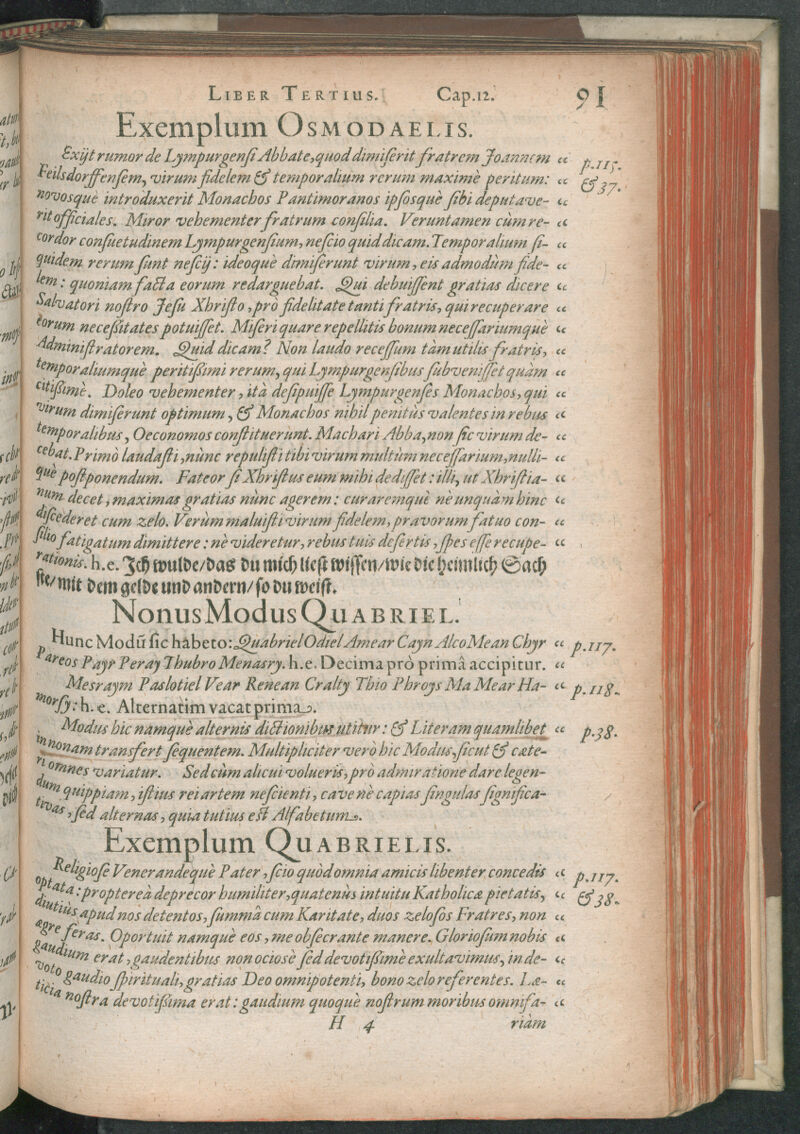 LIBER TERTIUS. Cap.12. 91
Exemplum OSMODAELIS.
Exijt rumor de Lympurgensi Abbate, quod dimiserit fratrem Joannem “ p.115.
Feilsdorffensem, virum fidelem & temporalium rerum maximè peritum: “ &37.
novosquè introduxerit Monachos Pantimoranos ipsosquè sibi deputave- “
rit officiales. Miror vehementer fratrum consilia. Veruntamen cùm re- “
cordor consuetudinem Lympurgensium, nescio quid dicam. Temporalium si- “
quidem rerum sunt nescij: ideoquè dimiserunt virum, eis admodùm fide- “
lem: quoniam facta eorum redarguebat. Qui debuissent gratias dicere “
Salvatori nostro Jesu Xhristo, prò fidelitate tanti fratris, qui recuperare “
eorum necessitates potuisset. Miseri quare repellitis bonum necessariumquè “
Adminstratorem. Quid dicam? Non laudo recessum tàm utilis fratris, “
temporaliumquè peritissimi rerum, qui Lympurgensibus subvenisset quàm “
citissimè. Doleo vehementer, ità desipuisse Lympurgenses Monachos, qui “
virum dimiserunt optimum, & Monachos nihil penitùs valentes in rebus “
temporalibus, Oeconomos constituerunt. Machari Abba, non sic virum de- “
cebat. Primò laudasti, nùnc repulisti tibi virum multùm necessarium, nulli- “
què postponendum. Fateor si Xhristus eum mihi dedisset: illi, ut Xhristia- “
num decet, maximas gratias nùnc agerem: curaremquè nè unquàm hinc “
discederet cum zelo. Verùm maluisti virum fidelem, pravorum fatuo con- “
silio fatigatum dimittere: nè videretur, rebus tuis desertis, spes esse recupe- “
rationis. h.e. Ich wulde/das du mich liest wissen/wie die heimlich Sach
ste/mit dem gelde und andern/so du weist.
Nonus Modus QUABRIEL.
Hunc Modū sic habeto: Quabriel Odiel Amear Cayn Alco Mean Chyr “ p.117.
Pareos Payr Peray Thubro Menasry. h.e. Decima prò primâ accipitur. “
Mesraym Paslotiel Vear Renean Cralty Thio Phroys Ma Mear Ha- “ p.118.
morsy: h. e. Alternatim vacat prima.
Modus hic namquè alternis dictionibus utitur: & Literam quamlibet “ p.38.
in nonam transfert sequentem. Multipliciter verò hic Modus, sicut & cæte-
ri omnes variatur. Sed cùm alicui volueris, prò admiratione dare legen-
dum quippiam, istius rei artem nescienti, cave nè capias singulas significa-
tivas, sed alternas, quia tutius est Alfabetum.
Exemplum QUABRIELIS.
Religiose Venerandequè Pater, scio quòd omnia amicis libenter concedis “ p.117.
optata: propterea deprecor humiliter, quatenùs intuitu Katholicæ pietatis, “ &38.
diutiùs apud nos detentos, summâ cum Karitate, duos zelosos Fratres, non “
ægre feras. Oportuit namquè eos, me obsecrante manere. Gloriosum nobis “
gaudium erat, gaudentibus non ociosè sed devotissimè exultavimus, in de- “
voto gaudio spirituali, gratias Deo omnipotenti, bono zelo referentes. Læ- “
ticia nostra devotissima erat: gaudium quoquè nostrum moribus omnifa- “
H 4 riàm